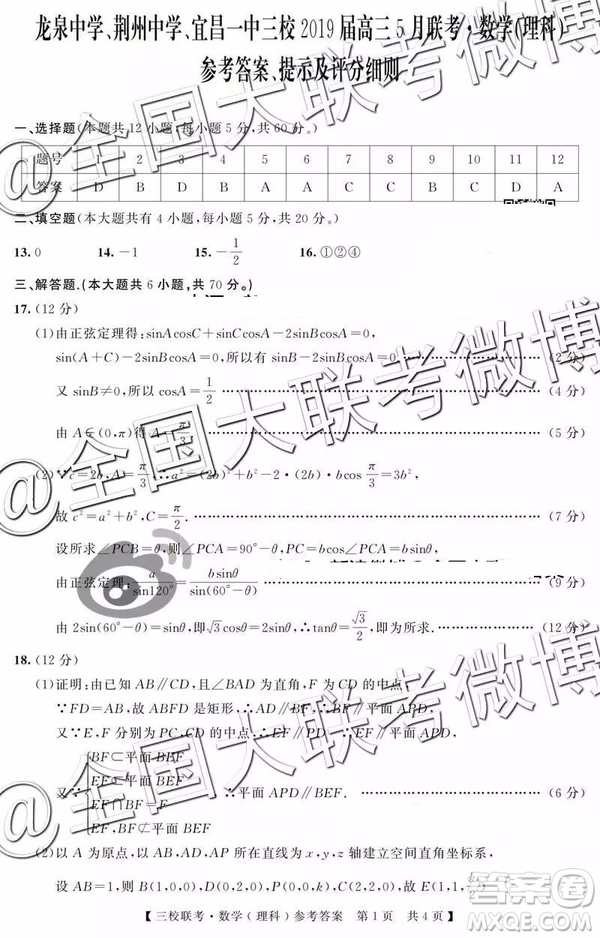 龙泉中学、荆州中学、宜昌一中三校2019届高三5月联考·数学(理科)
参考答案、提示及评分细则
一、选择题(本题共12小题,每小题5分,共60分。)
题号 2 3 4 5 6 7 8 9 10 11 12
答案 D B D B A C C A D A
二、填空题(本大题共有4小题,每小题5分,共20分。)
13.0 14.-1 15.-1/2 16.①②④
三、解答题.(本大题共6小题,共70分。)
17.(12分)
(1)由正弦定理得:sinAcosC+sinCcosA-2sinBcosA=0,
sin(A+C)-2sinBcosA=0,所以有sinB-2sinBcosA=0 (2分)
又sinB≠0,所以cosA=1/2 (4分)
由A∈(0,π)得A=π/3 (5分)
(2)∵c=2b,A=π/3∴a²=(2b)²+b²-2·(2b)·bcosπ/3=3b²,
故c²=a²+b²,C=π/2. (7分)
设所求∠PCB=θ,则∠PCA=90°-θ,PC=bcosθ
由正弦定理:a/sin120°=bsinθ/sin(60°-θ) (9分)
由2sin(60°-θ)=sinθ,即√3cosθ=2sinθ,∴tanθ=√3/2,即为所求. (12分)
18.(12分)
(1)证明:由已知AB∥CD,且∠BAD为直角,F为CD的中点,
∵FD=AB,故ABFD是矩形,∴AD∥BF,∴BF∥平面APD,
又∵E,F分别为PC,CD的中点.∴EF∥PD ∴EF∥平面APD,
又∵ BF⊂平面BEF
EF⊂平面BEF
EF∩BF=F
∴平面APD∥平面BEF. (6分)
(2)以A为原点,以AB,AD,AP所在直线为x,y,z轴建立空间直角坐标系,
设AB=1,
【三校联考·数学(理科)参考答案 第1页 共4页】
@全国大联考微博
@全国大联考微博
答案卷